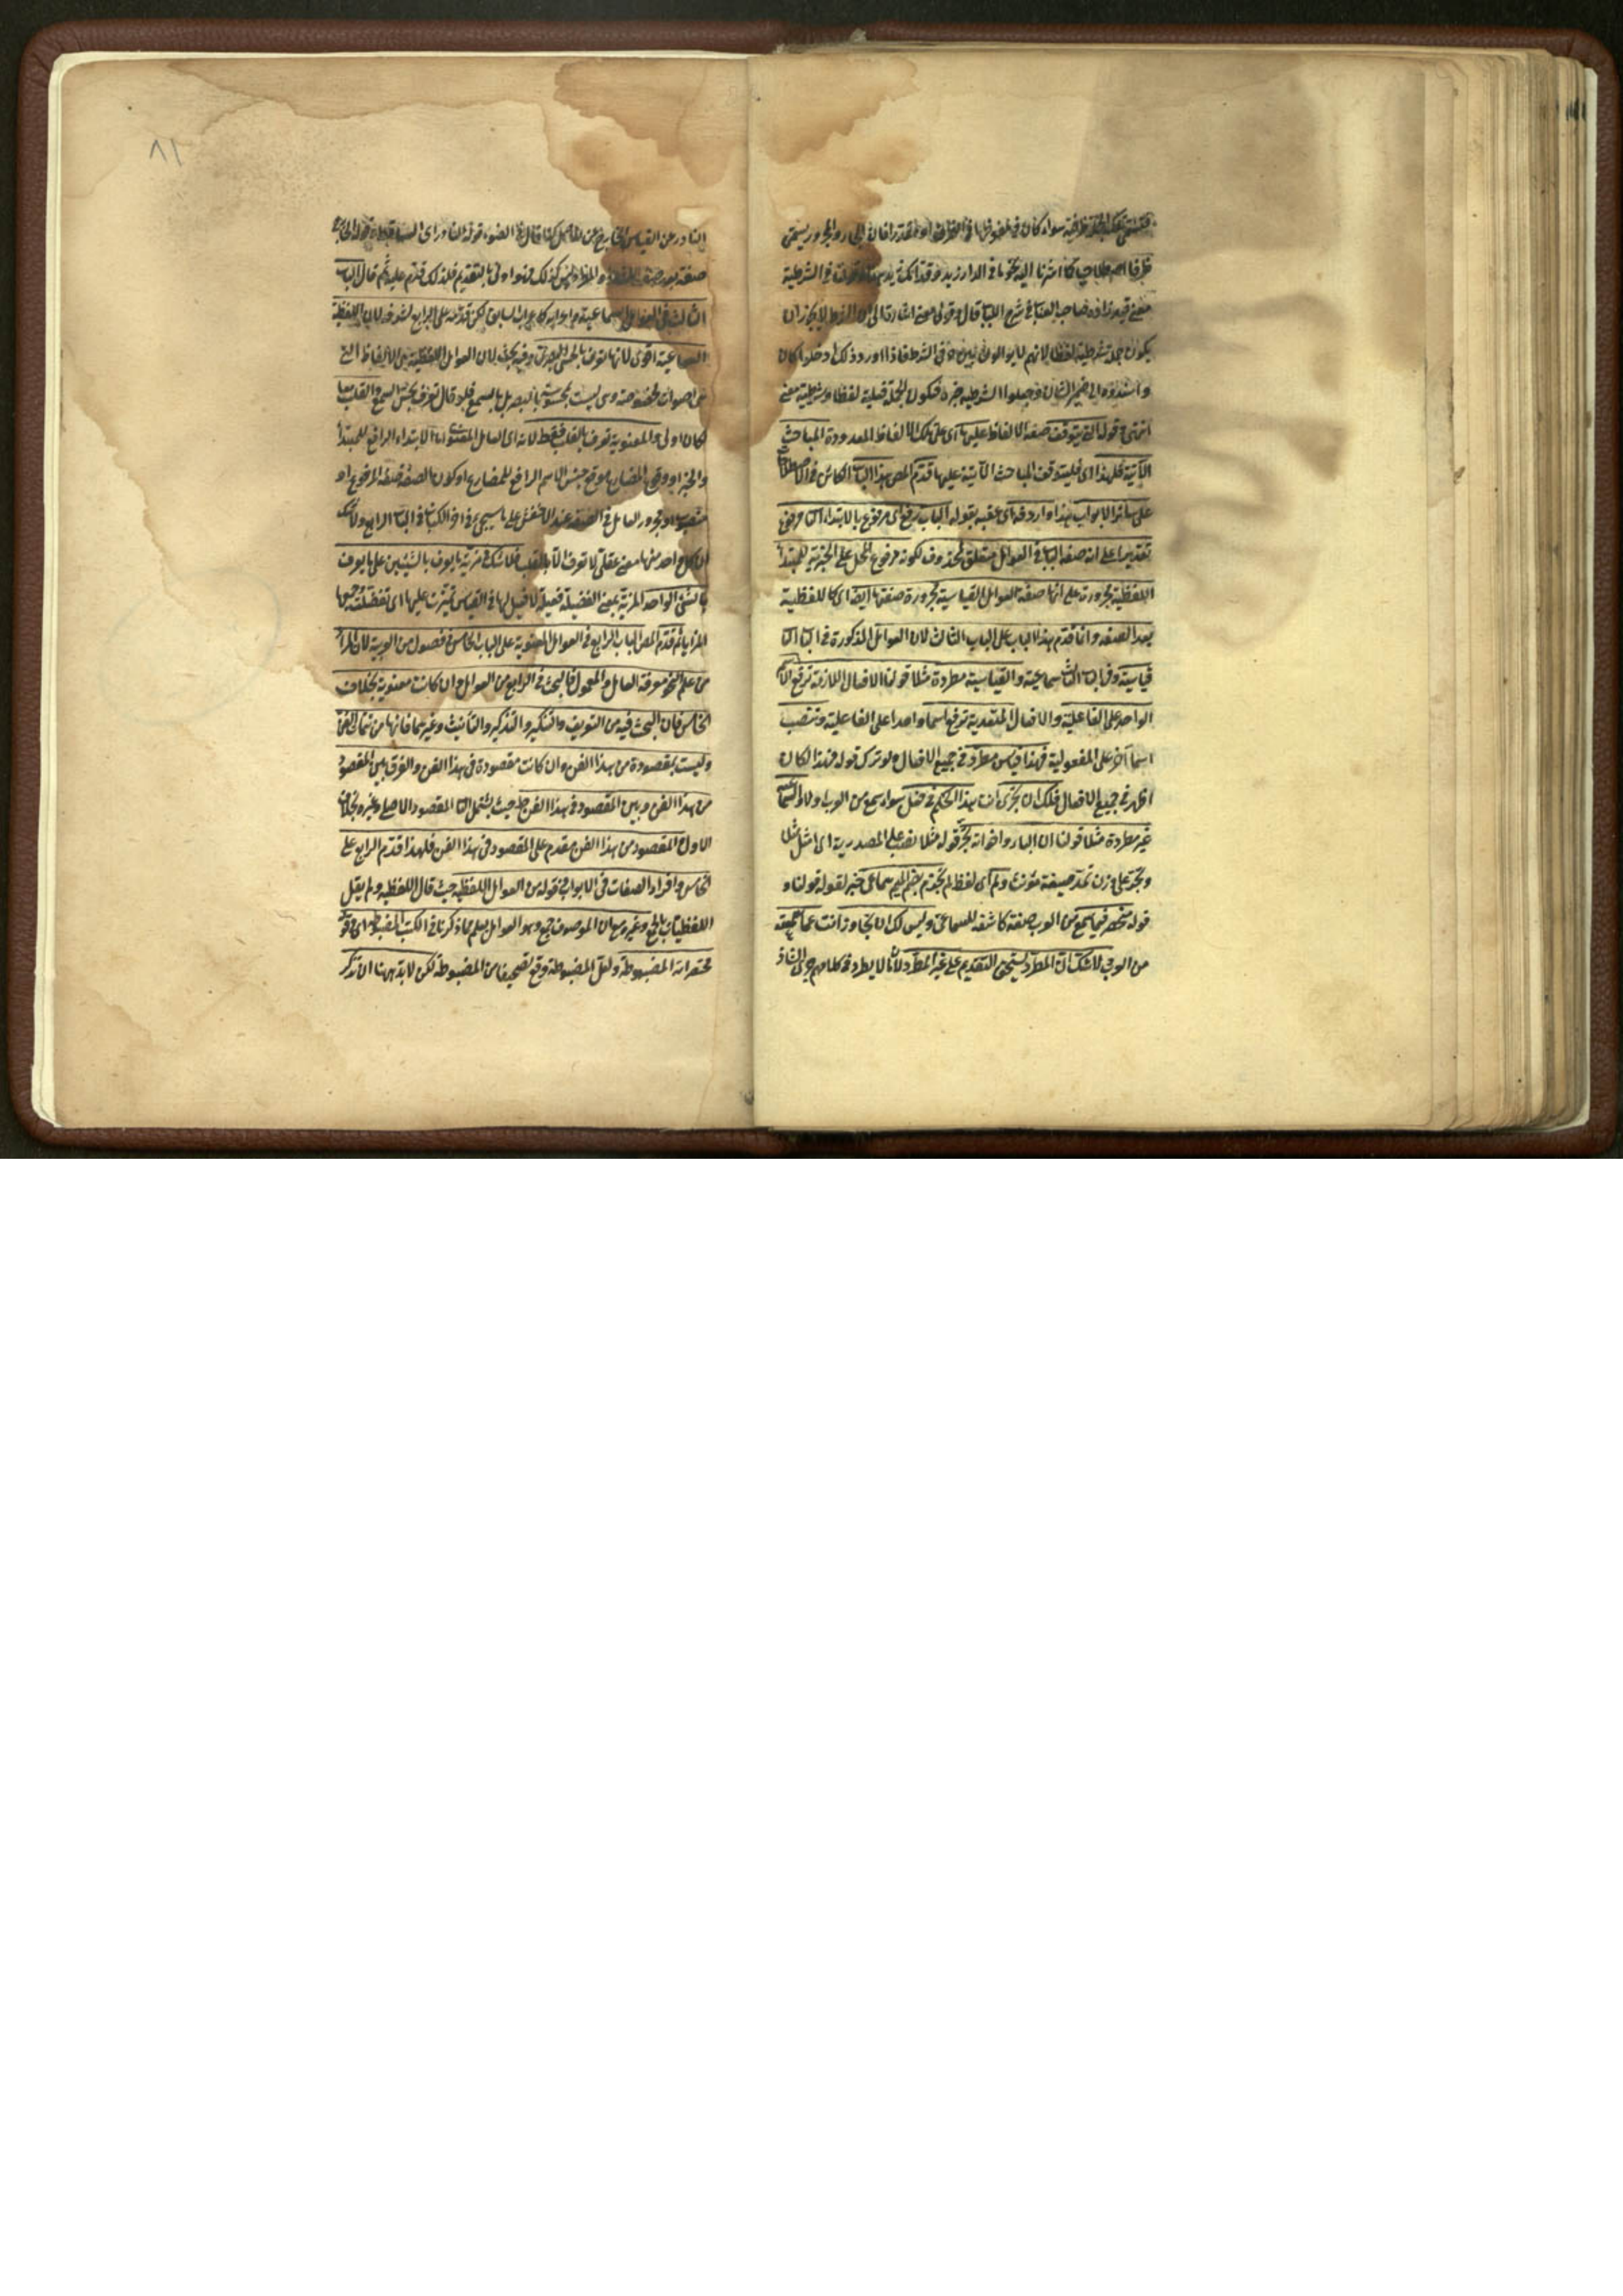 سواء كان في
ظرفا اصطلاحيا كما اشرنا اليه نحو ما في الدار زيد وقدامك زيد في الشرطية
معنى قيد زاده صاحب العباب في شرح اللباب قال وقولي معنى اشارة الى ان الشرط لا يجوز ان
يكون جملة شرطية لفظا لانهم لا يوالون بين حرفي الشرط فاذا اورد ذلك ادخلوا كان
واسندوه الى ضمير الشان وجعلوا الشرطية خبره فيكون الجملة فعلية لفظا وشرطية معنى
انتهى قوله التي يتوقف صفة الالفاظ عليها اى على تلك الالفاظ المعدودة المباحث
الآتية فلهذا اى فليتوقف المباحث الآتية عليها قدم المص هذا الباب الكائن في الاصطلاحات
على سائر الابواب هذا واردفه اى عقبه بقوله الباب رفع اى مرفوع بالابتداء الثاني مرفوع
تقديرا على انه صفة الباب في العوامل متعلق بمحذوف لكونه مرفوع المحل على الخبرية للمبتدأ
اللفظية مجرورة على انها صفة العوامل القياسية مجرورة صفتها ايضا اى كاللفظية
بعد الصفة وانما قدم هذا الباب على الباب الثالث لان العوامل المذكورة في الباب الثاني
قياسية وفي الباب الثالث سماعية والقياسية مطردة مثلا قولنا الافعال اللازمة ترفع الاسم
الواحد على الفاعلية والافعال المتعدية ترفع اسما واحدا على الفاعلية وتنصب
اسما آخر على المفعولية فهذا قياس مطرد في جميع الافعال ولو ترك قوله فهذا لكان
اظهر في جميع الافعال فلك ان تجرى انت هذا الحكم في فعل سواء سمع من العرب اولا والسماعية
غير مطردة مثلا قولنا ان الباء واخواته تجر قوله مثلا نصب على المصدرية اى امثل مثلا
وتجر على وزن تمد صيغة مؤنث ولم اى لفظ لم تجزم بضم الميم سماعى خبر لقوله قولنا و
قوله منحصر فيما سمع من العرب صفة كاشفة للسماعى وليس لك ان تتجاوز انت عما سمعته
من العرب لاشك ان المطرد يستحق التقديم على غير المطرد لانا لا يطرد في كلامهم جرى الشاذ
النادر عن القياس الخارج عن الاصل كذا قال في الضوء قوله النادر اى
صفة بعد صفة كذلك فهو اولى بالتقديم فلذلك قدم عليه ثم قال الباب
الثالث في العوامل السماعية واعرابه كاعراب السابق لكن قدمه على الرابع لشرفه لان اللفظية
السماعية اقوى لانها تعرف بالحس البصرى وفيه بحث لان العوامل اللفظية من الالفاظ التي
هي اصوات مخصوصة وهي ليست بمحسوسة بالبصر بل بالسمع فلو قال تعرف بحس السمع والقلب معا
لكان اولى والمعنوية تعرف بالقلب فقط لانه اى العامل المعنوى اما الابتداء الرافع للمبتدأ
والخبر او وقوع المضارع موقع جنس الاسم الرافع للمضارع او كون الصفة صفة لمرفوع او
منصوب او مجرور العامل في الصفة عند الاخفش على ما سيجئ في آخر الكتاب في الباب الرابع ولا شك
ان كل واحد منها معنى عقلى لا تعرف الا بالقلب فلا شك في مزية ما يعرف بالشيئين على ما يعرف
بالشئ الواحد المزية بمعنى الفضيلة فعيلة لا فعل لها في القياس تميزت عليها اى تفضلت وجمعها
المزايا ثم قدم المص الباب الرابع في العوامل المعنوية على الباب الخامس في فصول من العربية لان المراد
من علم النحو معرفة العامل والمعمول فالبحث في الرابع من العوامل وان كانت معنوية بخلاف
الخامس فان البحث فيه من التعريف والتنكير والتذكير والتأنيث وغيرها فانها من
وليست بمقصودة من هذا الفن وان كانت مقصودة في هذا الفن والفرق بين المقصود
من هذا الفن وبين المقصود في هذا الفن حيث يشتمل الثاني المقصود الاصلى وغيره بخلاف
الاول المقصود من هذا الفن مقدم على المقصود في هذا الفن فلهذا قدم الرابع على
الخامس وافراد الصفات في الابواب في قوله من العوامل اللفظية حيث قال اللفظية ولم يقل
اللفظيات بالجمع وغيره مع ان الموصوف جمع وهو العوامل يعلم مما ذكرنا في الكتب المضبوطة اى في
مختصراته المضبوطة ولعل المضبوطة وقع تصحيفا من المضبوطة لكن لا بد ههنا ان نذكر
٨١